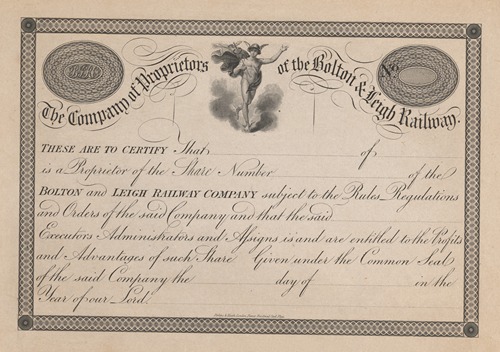 The Company of Proprietors of the Bolton & Leigh Railway.
No.
THESE ARE TO CERTIFY That of
is a Proprietor of the Share Number of the
BOLTON and LEIGH RAILWAY COMPANY subject to the Rules, Regulations
and Orders of the said Company and that the said
Executors Administrators and Assigns is and are entitled to the Profits
and Advantages of such Share Given under the Common Seal
of the said Company the day of in the
Year of our Lord.